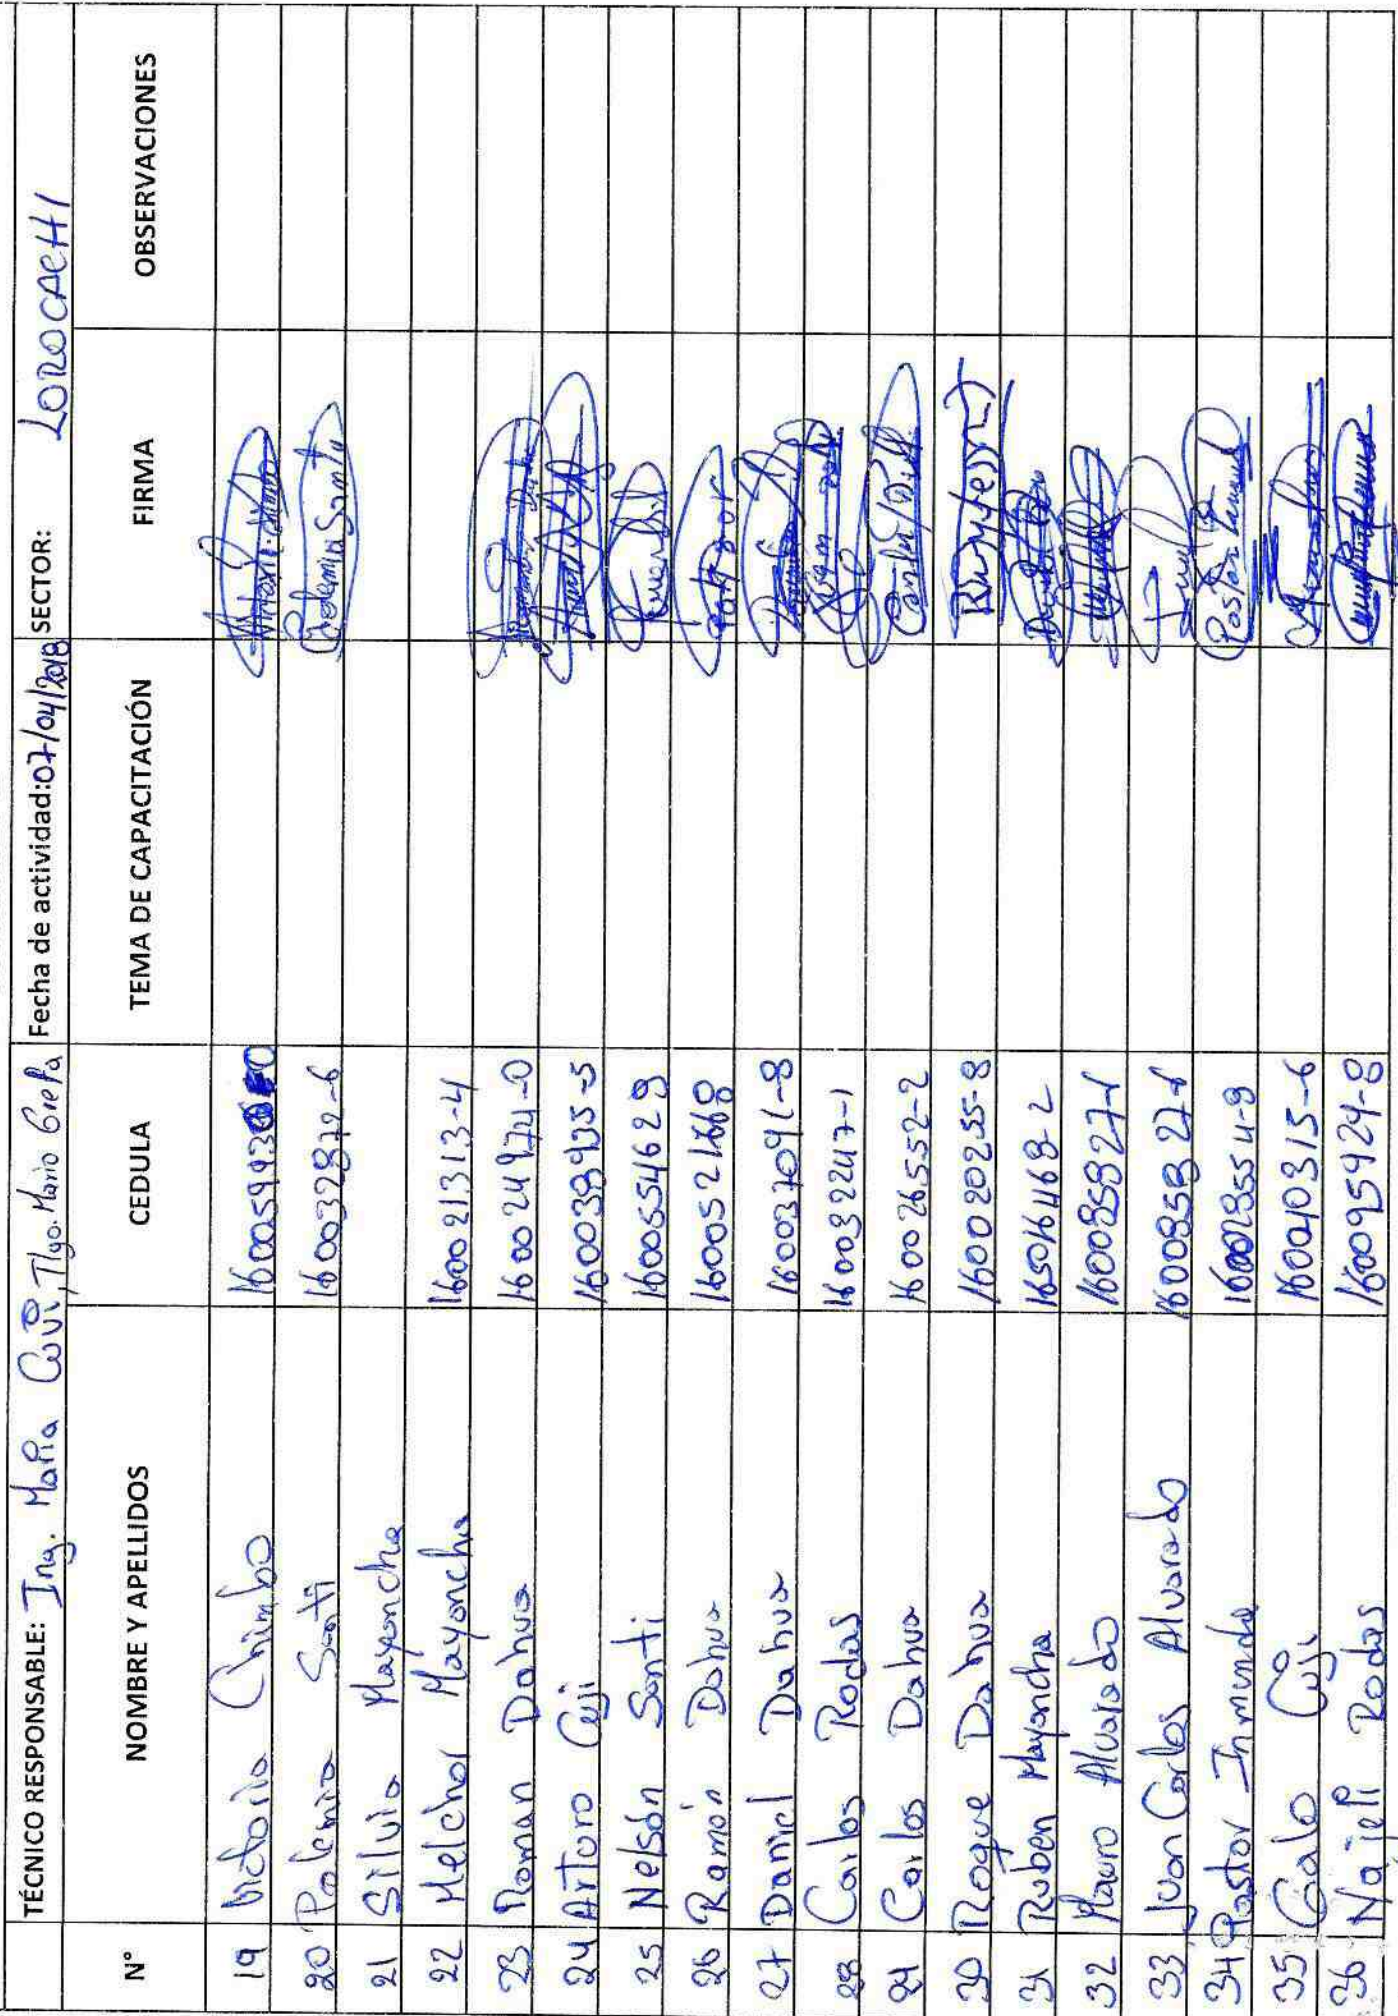 TÉCNICO RESPONSABLE: Ing. María Cují, Tlgo. Mario Grefa Fecha de actividad: 07/04/2018 SECTOR: LOROCACHI
N° NOMBRE Y APELLIDOS CEDULA TEMA DE CAPACITACIÓN FIRMA OBSERVACIONES
19 Victoria Chimbo
20 Polemia Santi 160032872-6
21 Silvia Mayancha
22 Melchor Mayancha 160021313-4
23 Roman Dahua 160024974-0
24 Arturo Cuji 160038935-5
25 Nelsón Santi 1600554629
26 Ramón Dahua
27 Daniel Dahua 160037091-8
28 Carlos Rodas 160032247-1
29 Carlos Dahua 160026552-2
30 Roque Dahua 160020255-8
31 Ruben Mayancha 165016468-2
32 Mauro Alvarado 160085827-1
33 Juan Carlos Alvarado 160085827-1
34 Pastor Inmunda 160028554-9
35 Galo Cuji 160040315-6
36 Najeli Rodas 160095924-8